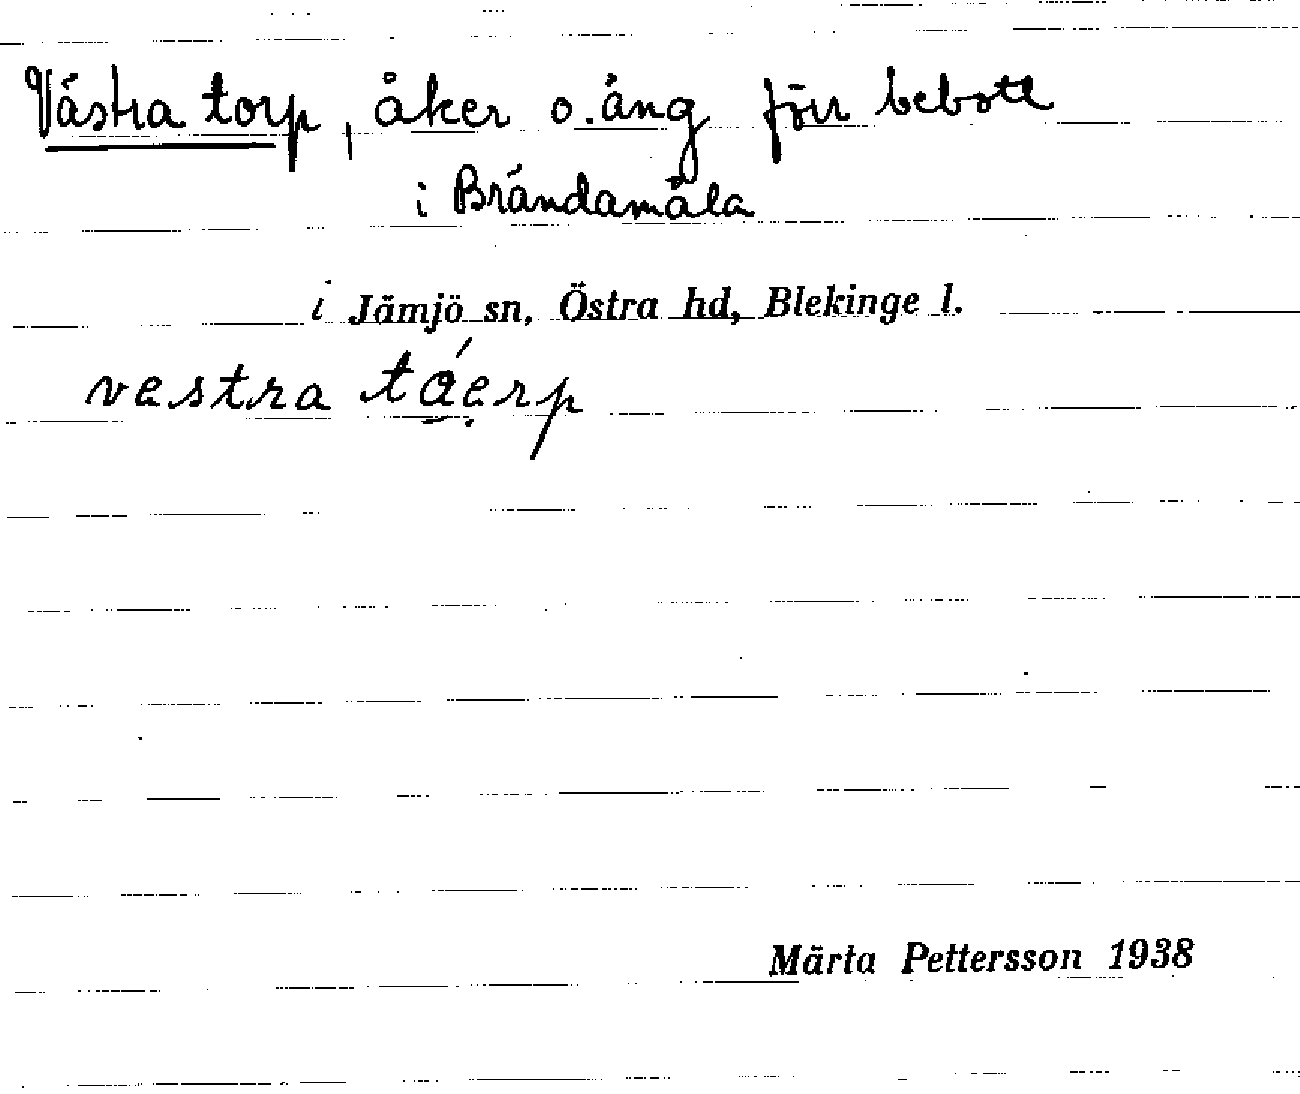 Västra torp, åker o. äng förr bebott
i Brändamåla
i Jämjö sn, Östra hd, Blekinge l.
vestra táerp
Märta Pettersson 1938